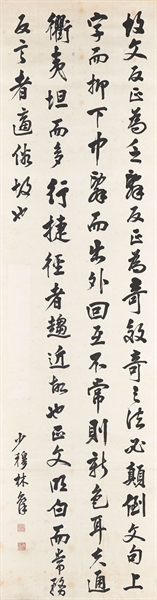 故文反正為乏辭反正為奇效奇之法必顛倒文句上
字而抑下中辭而出外回互不常則新色耳夫通
衢夷坦而多行捷徑者趨近故也正文明白而常務
反言者適俗故也
少穆林則徐